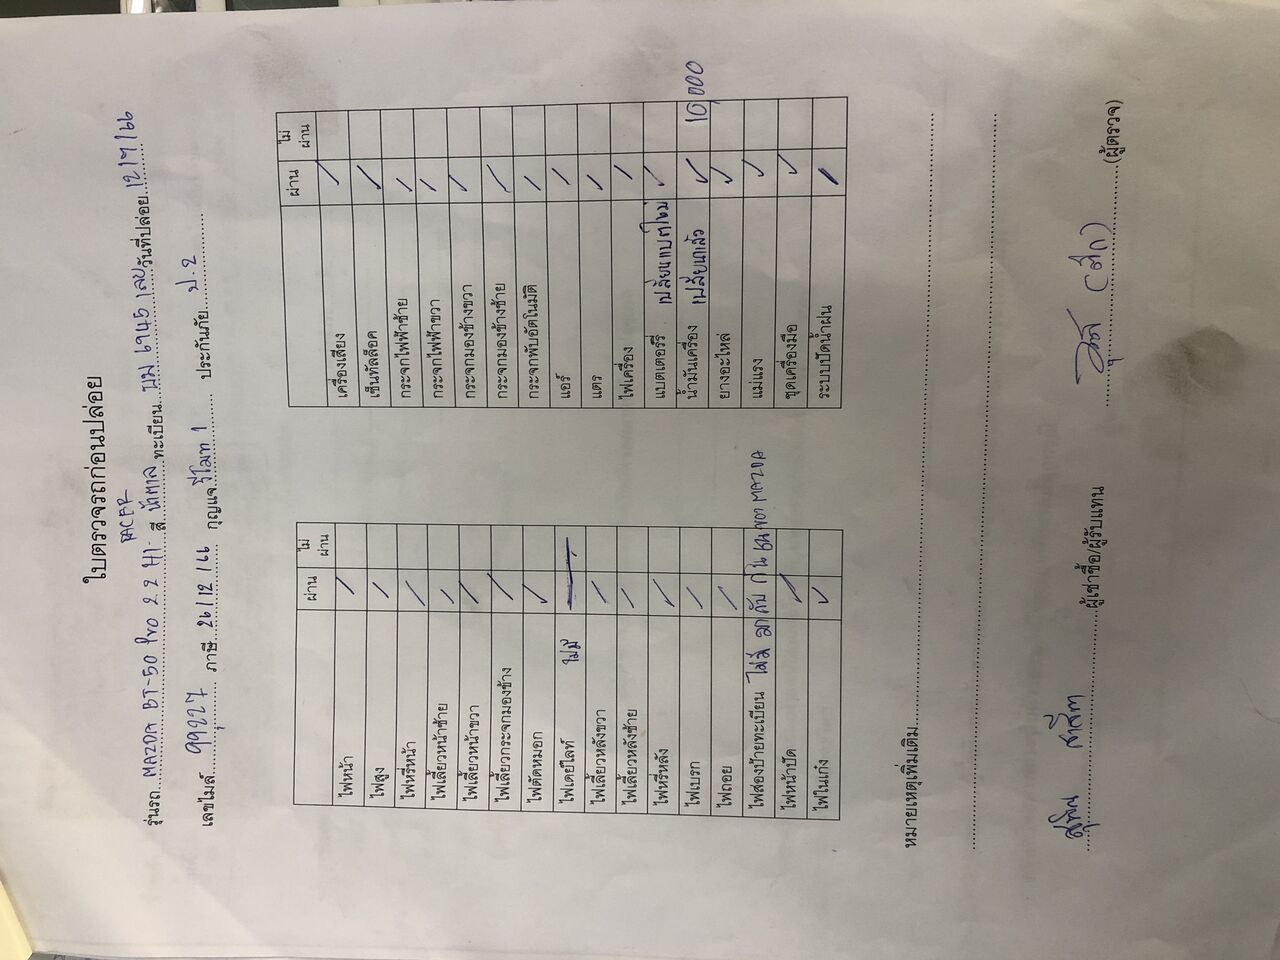 ใบตรวจรถก่อนปล่อย
RACER
รุ่นรถ...MAZDA BT-50 Pro 2 2 HI...สี...น้ำตาล...ทะเบียน... 6945 ...วันที่ปล่อย...12/7/66
เลขไมล์...99227...ภาษี...26/12/66 กุญแจ...รีโมท 1...ประกันภัย...ป.2...
ผ่าน ไม่ผ่าน
ไฟหน้า /
ไฟสูง /
ไฟหรี่หน้า /
ไฟเลี้ยวหน้าซ้าย /
ไฟเลี้ยวหน้าขวา /
ไฟเลี้ยวกระจกมองข้าง /
ไฟตัดหมอก /
ไฟเดย์ไลท์ ไม่มี
ไฟเลี้ยวหลังขวา /
ไฟเลี้ยวหลังซ้าย /
ไฟหรี่หลัง /
ไฟเบรก /
ไฟถอย /
ไฟส่องป้ายทะเบียน ไม่มี กับ กันชน ของ MAZDA
ไฟหน้าปัด /
ไฟในเก๋ง /
ผ่าน ไม่ผ่าน
เครื่องเสียง /
เซ็นทัลล็อค /
กระจกไฟฟ้าซ้าย /
กระจกไฟฟ้าขวา /
กระจกมองข้างขวา /
กระจกมองข้างซ้าย /
กระจกพับอัตโนมัติ /
แอร์ /
แตร /
ไฟเครื่อง /
แบตเตอรรี่ เปลี่ยนแบตใหม่ /
น้ำมันเครื่อง เปลี่ยนแล้ว / 10,000
ยางอะไหล่ /
แม่แรง /
ชุดเครื่องมือ /
ระบบปัดน้ำฝน /
หมายเหตุเพิ่มเติม
ผู้เช่าซื้อ/ผู้รับแทน
(ผู้ตรวจ)